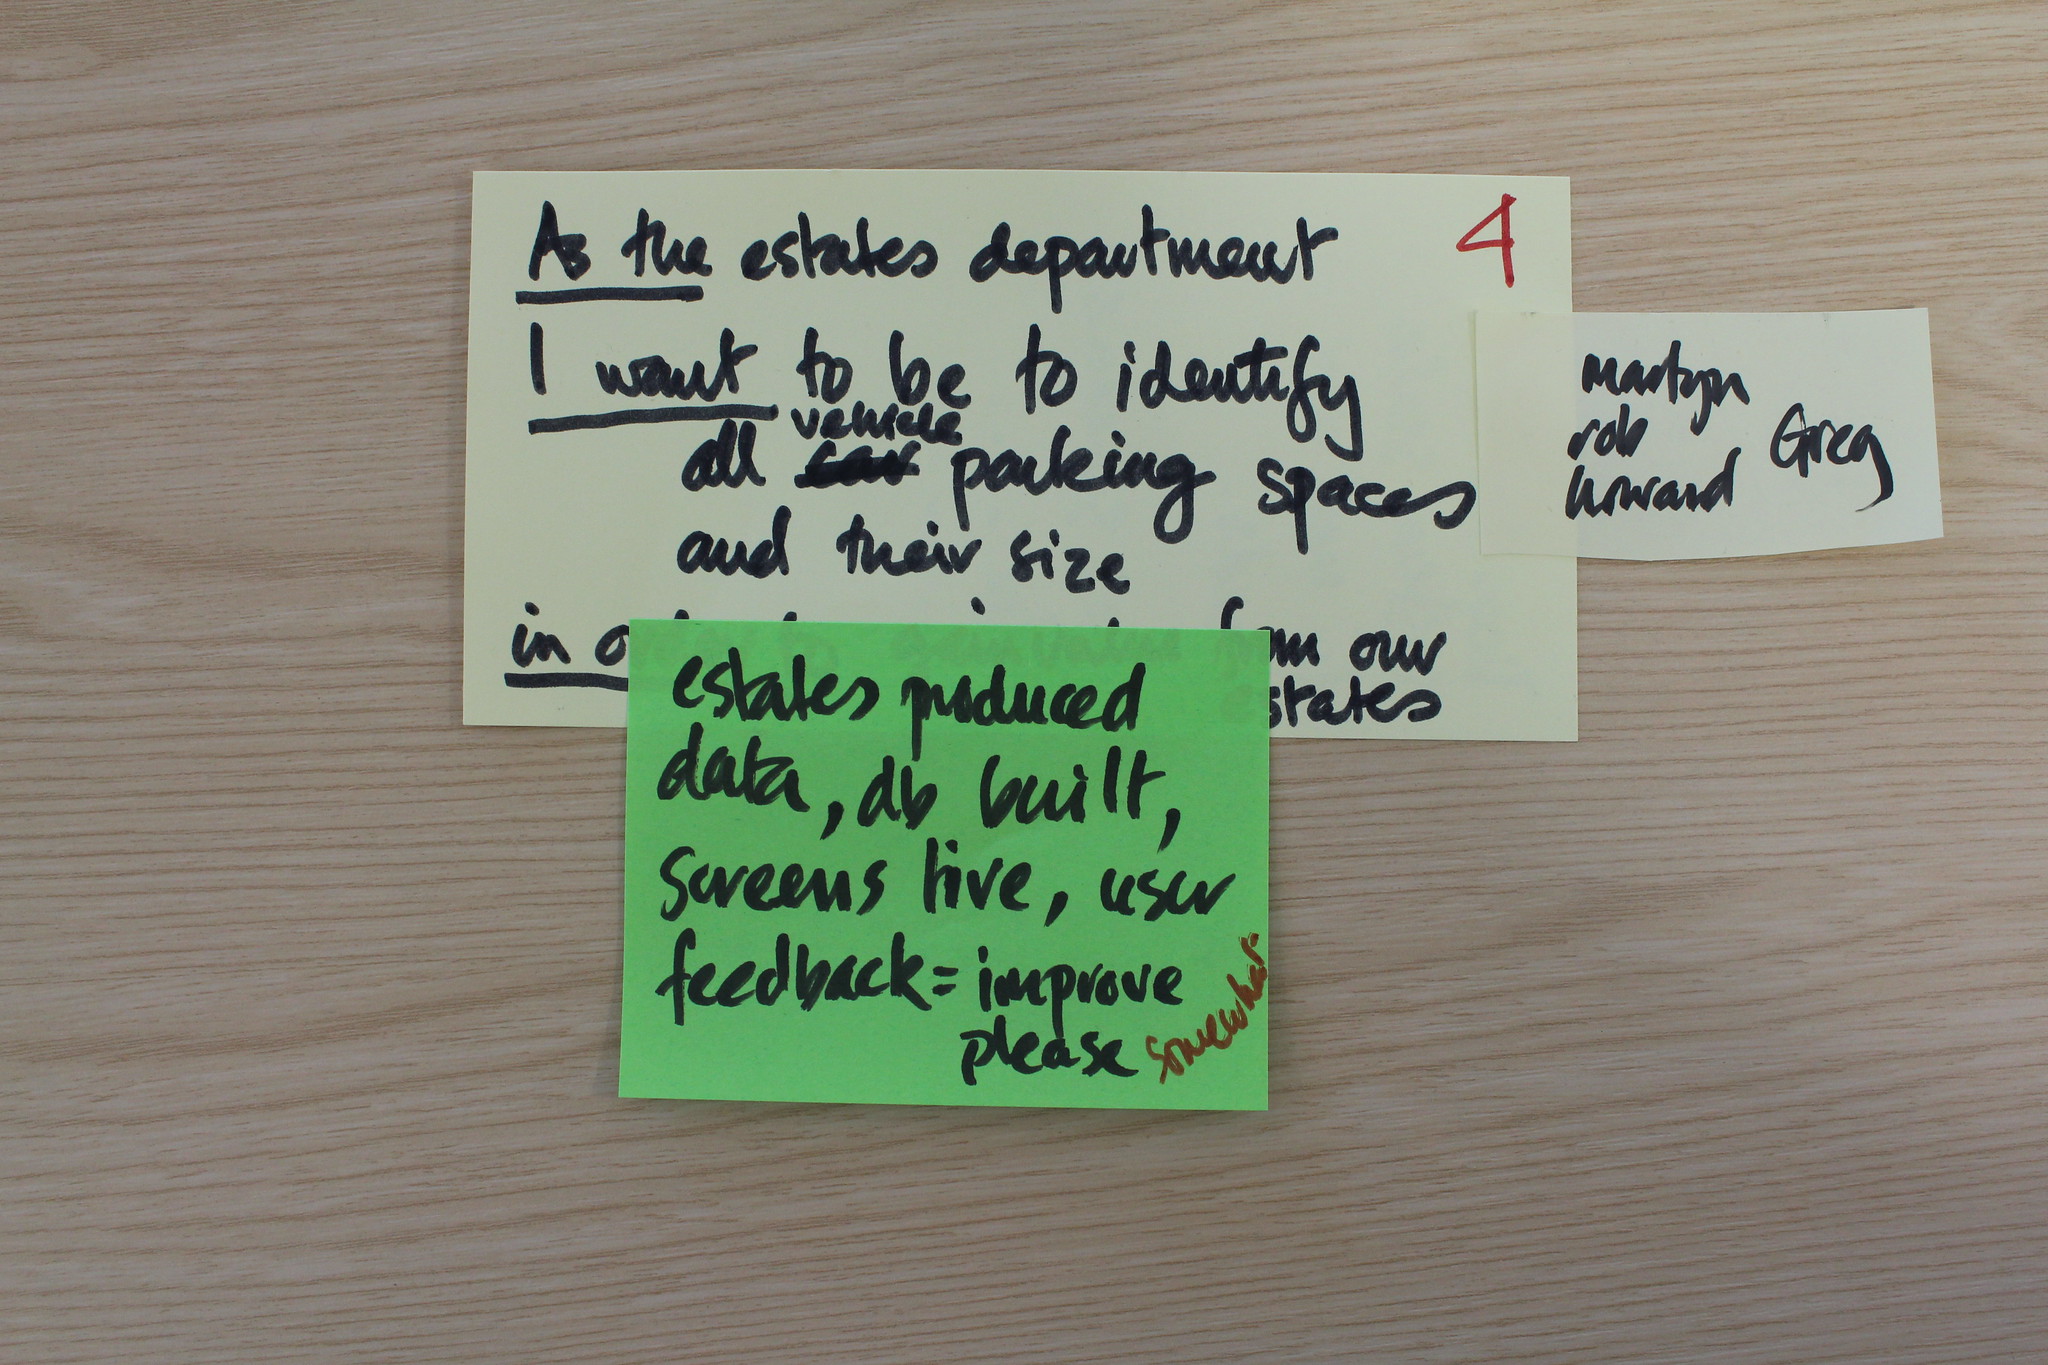 As the estates department
4
I want to be to identify
vehicle
all car parking spaces
and their size
in from our
estates
martyn
rob
howard
Greg
estates produced
data, db built,
screens live, user
feedback = improve
please
somewhat